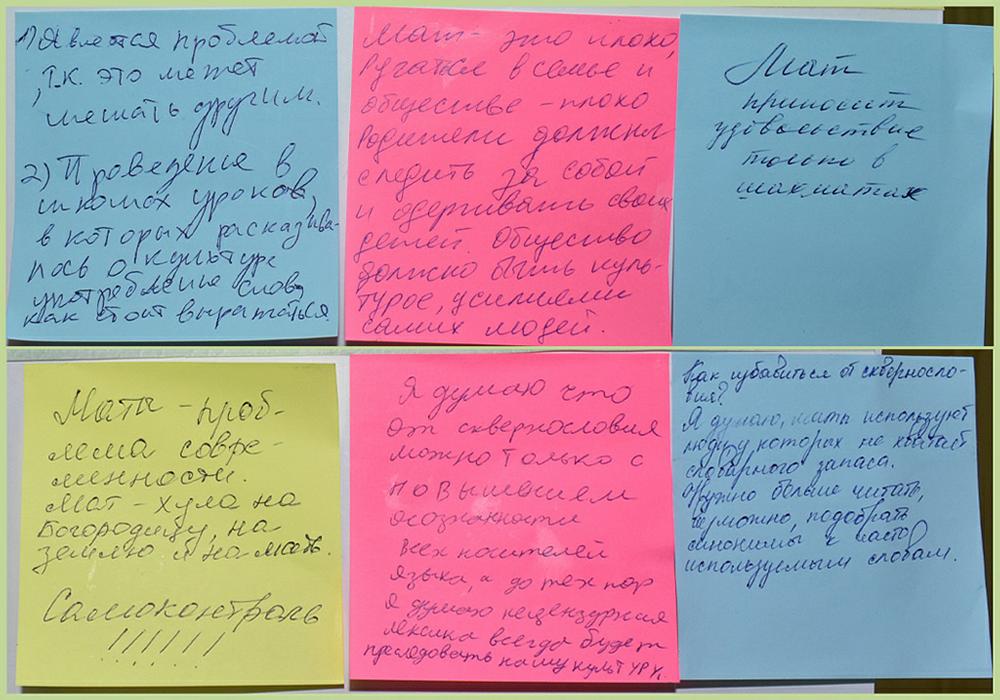 1) Является проблемой
, т.к. это может
мешать другим.
2) Проведение в
школах уроков,
в которых расказыва-
лось о культуре
употребление слов,
как стоит выражаться.
Мат - это плохо,
Ругатся в семье и
обществе - плохо
Родители должны
следить за собой
и одерживать своих
детей. Общество
должно быть куль-
турое, усилиями
самих людей.
Мат
приносит
удовольствие
только в
шахматах
Маты - проб-
лема совре-
менности.
Мат - хула на
Богородицу, на
землю и на мать.
Самоконтроль
!!!!!!
Я думаю что
от сквернословия
можно только с
повышением
осознанности
всех носителей
языка, а до тех пор
я думаю нецензурная
лексика всегда будет
преследовать нашу культуру.
Как избавиться от скверносло-
вия?
Я думаю, маты используют
люди, у которых не хватает
словарного запаса.
Нужно больше читать,
возможно, подобрать
синонимы к часто
используемым словам.